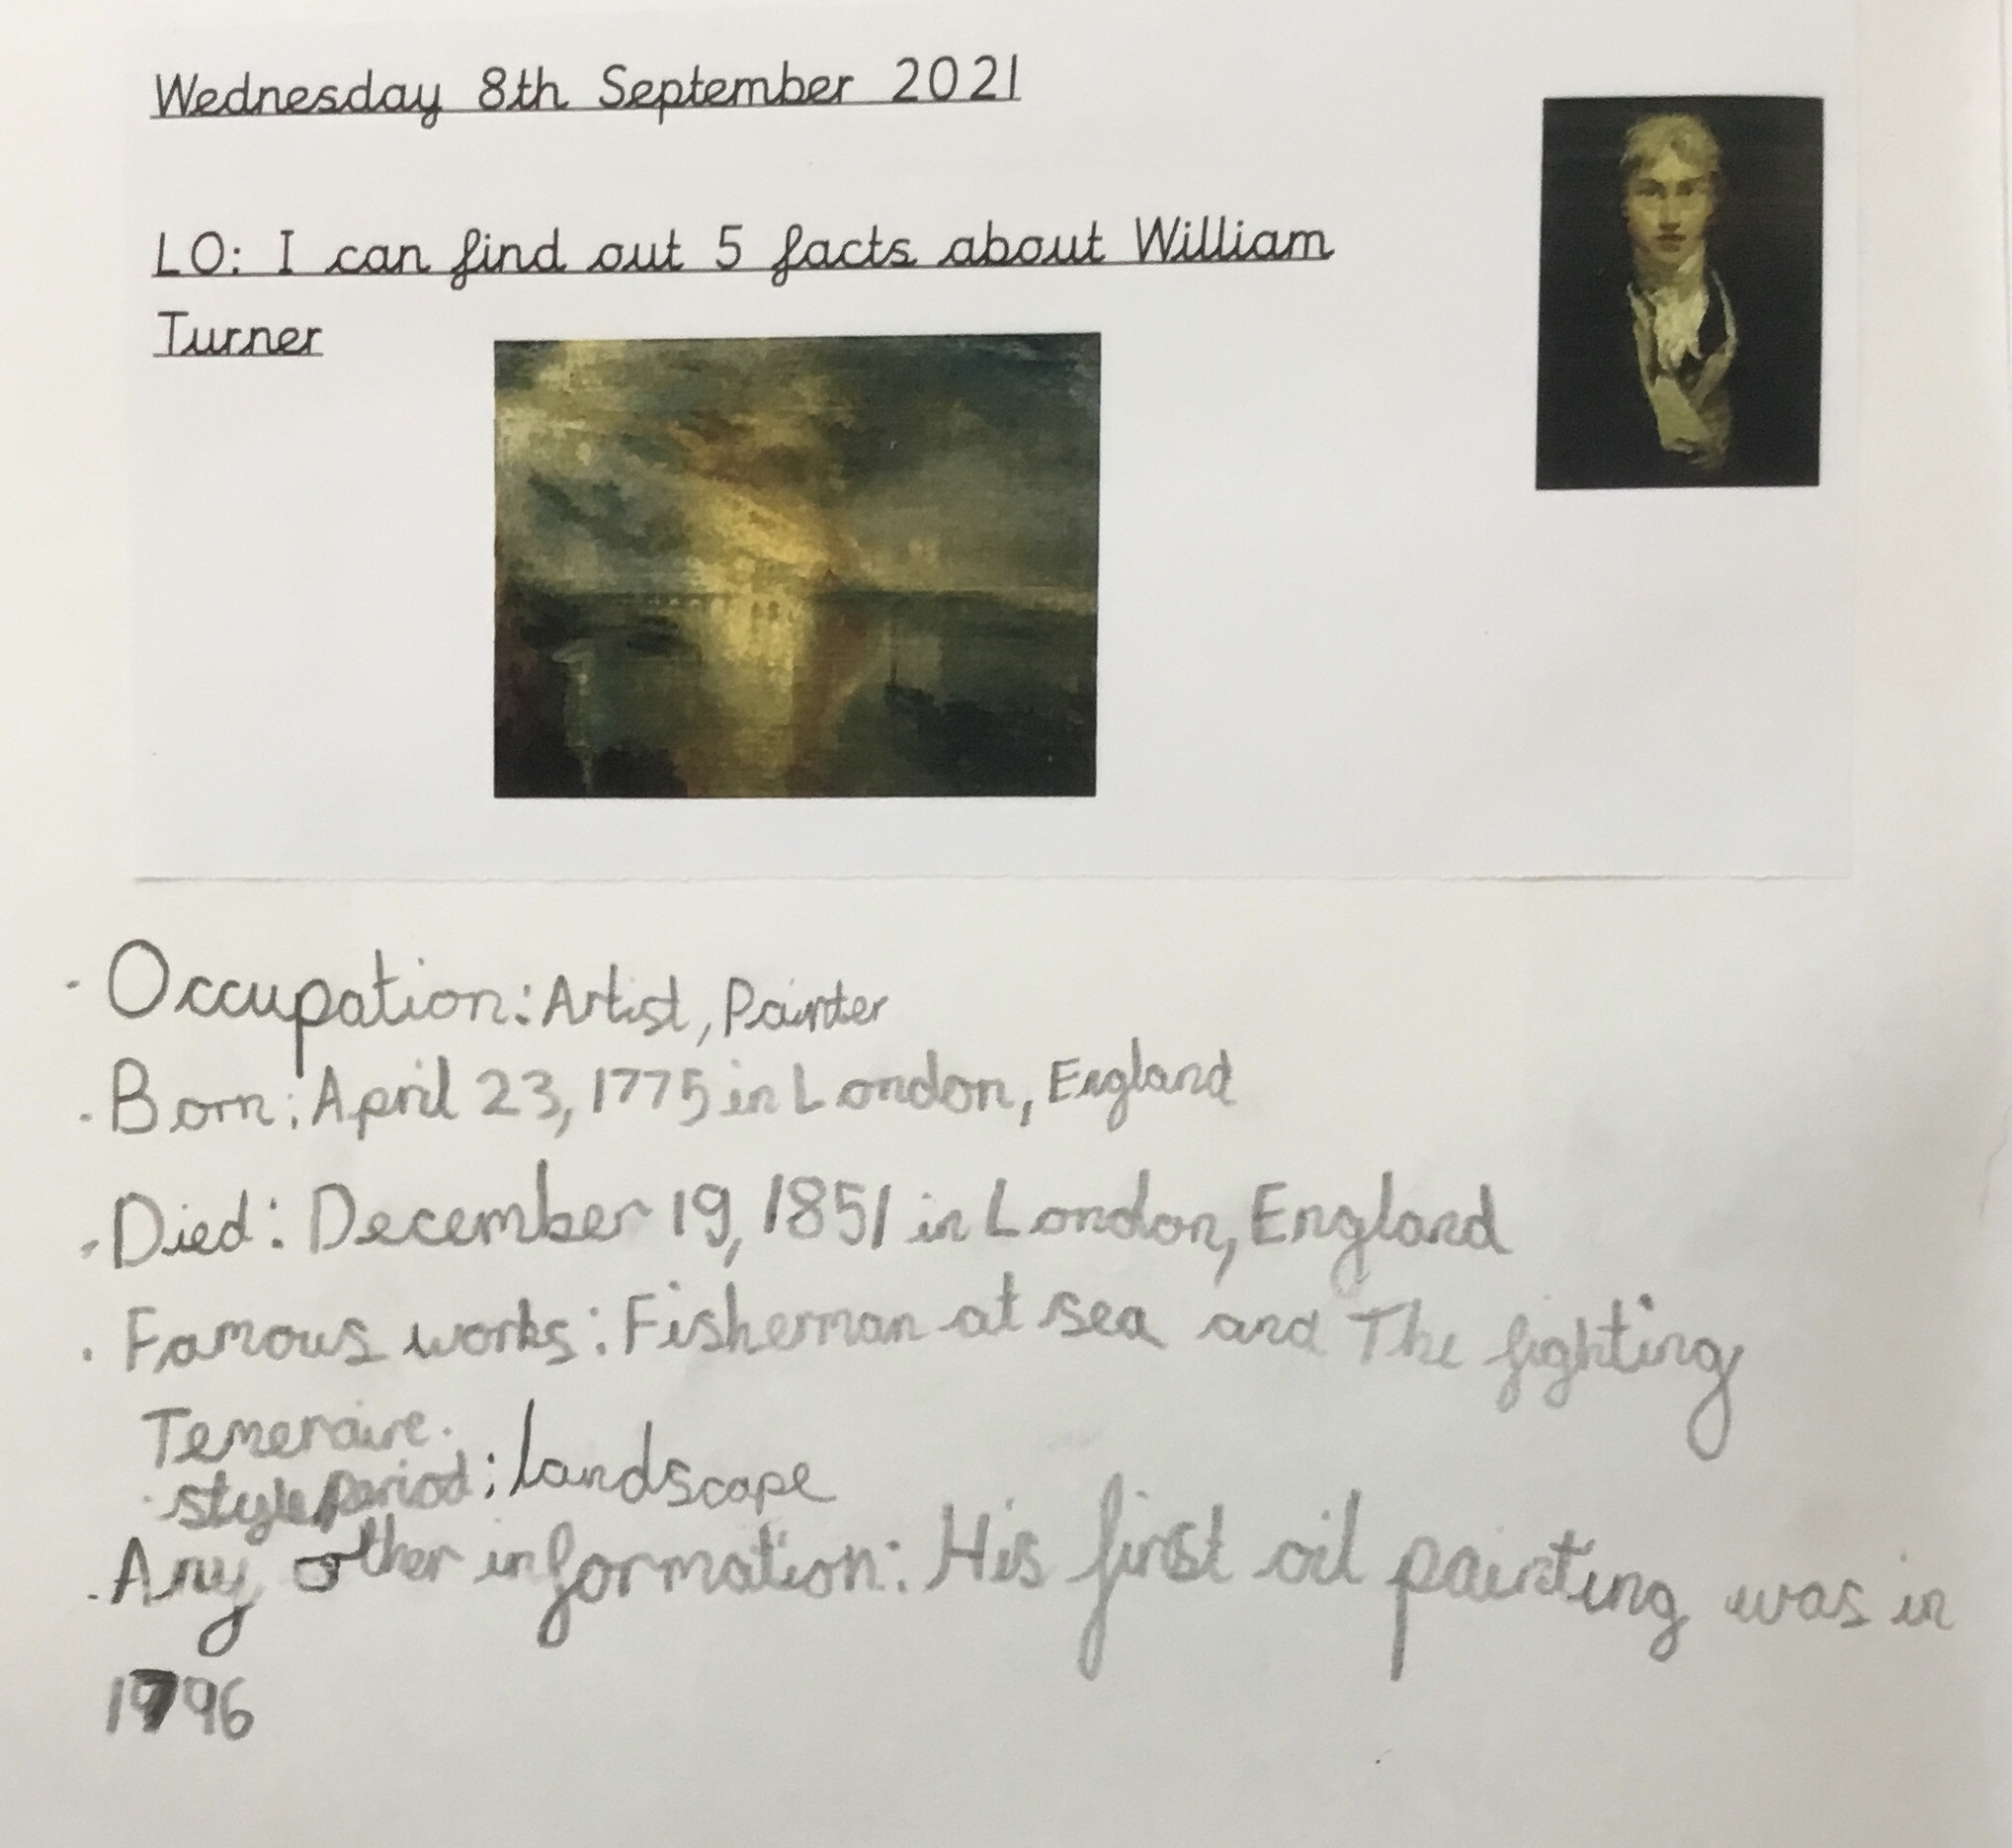 Wednesday 8th September 2021
LO: I can find out 5 facts about William
Turner
· Occupation: Artist, Painter
· Born: April 23, 1775 in London, England
· Died: December 19, 1851 in London, England
· Famous works: Fisherman at sea and The fighting
Temeraire.
· style/period: landscape
· Any other information: His first oil painting was in
1796